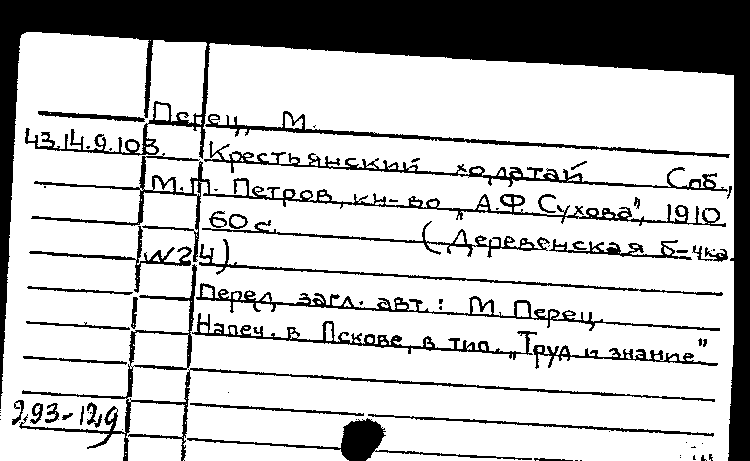 Перец, М.
43.14.9.103. Крестьянский ходатай Спб.,
М.П. Петров, кн-во "А.Ф. Сухова", 1910.
60 с. ("Деревенская б-чка.
№24).
Перед загл. авт.: М. Перец.
Напеч. в Пскове, в тип. "Труд и знание"
293-129